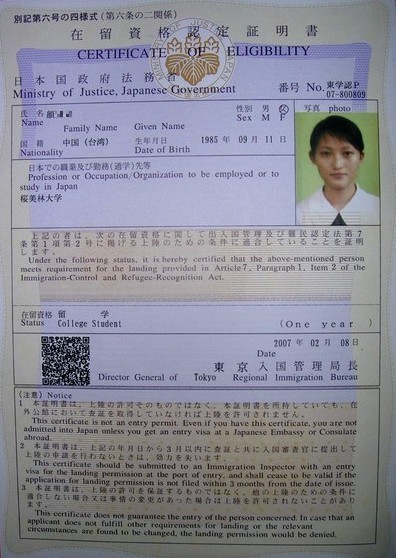 別記第六号の四様式（第六条の二関係）
在留資格認定証明書
CERTIFICATE OF ELIGIBILITY
日本国政府法務省
Ministry of Justice, Japanese Government
番号 No. 東学認P
07-800809
氏名 顏
Name
Family Name Given Name
性別 男 女
Sex M F
写真 photo
国籍 中国（台湾） 生年月日 1985 年 09 月 11 日
Nationality Date of Birth
日本での職業及び勤務（通学）先等
Profession or Occupation/Organization to be employed or to
study in Japan
桜美林大学
上記の者は、次の在留資格に関して出入国管理及び難民認定法第7
条第1項第2号に掲げる上陸のための条件に適合していることを証明し
ます。
Under the following status, it is hereby certified that the above-mentioned person
meets requirement for the landing provided in Article7, Paragraph 1, Item 2 of the
Immigration-Control and Refugee-Recognition Act.
在留資格 留学
Status College Student (One year)
2007 年 02 月 08 日
Date
東京入国管理局長
Director General of Tokyo Regional Immigration Bureau
（注意）Notice
1 本証明書は、上陸の許可そのものではなく、本証明書を所持していても、在
外公館において査証を取得していなければ上陸を許可されません。
This certificate is not an entry permit. Even if you have this certificate, you are not
admitted into Japan unless you get an entry visa at a Japanese Embassy or Consulate
abroad.
2 本証明書は、上記の年月日から3月以内に査証と共に入国審査官に提出して
上陸の申請を行わないときは、効力を失います。
This certificate should be submitted to an Immigration Inspector with an entry
visa for the landing permission at the port of entry, and shall cease to be valid if the
application for landing permission is not filed within 3 months from the date of issue.
3 本証明書は、上陸の許可を保証するものではなく、他の上陸のための条件に
適合しない場合又は事情の変更があった場合は上陸を許可されないことがあり
ます。
This certificate does not guarantee the entry of the person concerned. In case that an
applicant does not fulfill other requirements for landing or the relevant
circumstances are found to be changed, the landing permission would be denied.